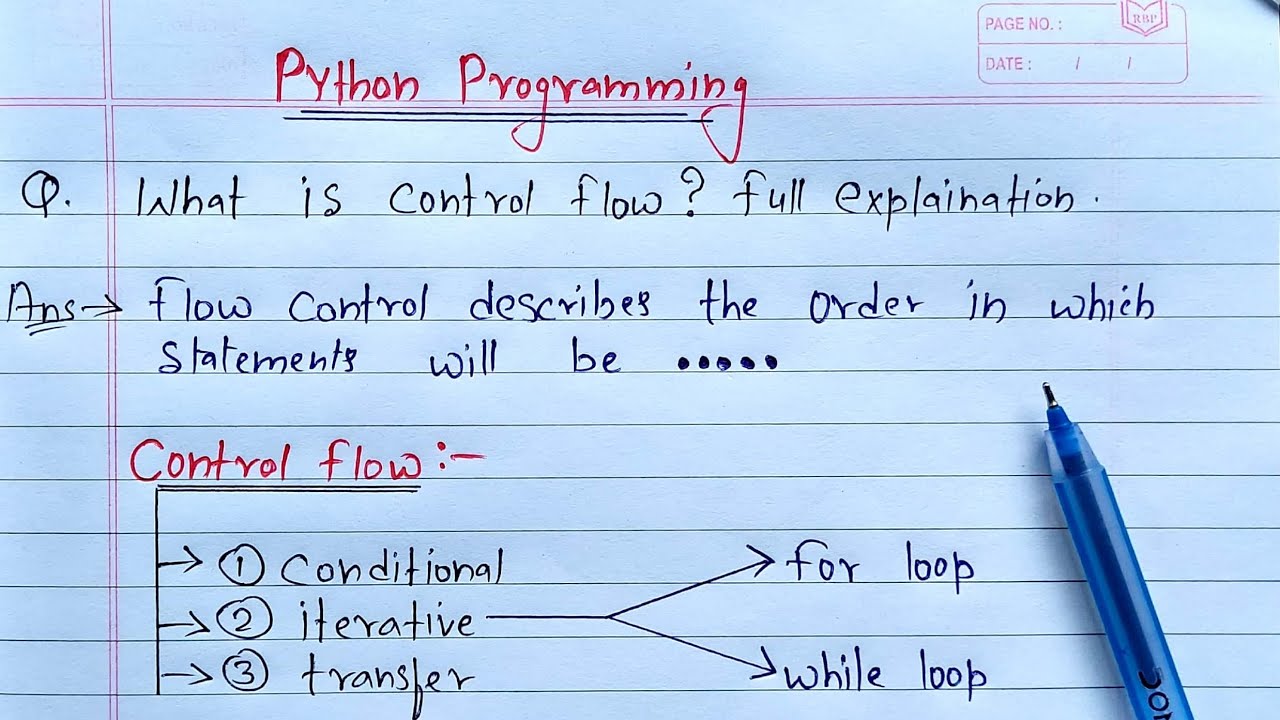 RBP
PAGE NO. :
DATE : / /
Python Programming
Q. What is control flow? full explaination.
Ans→ flow control describes the order in which
statements will be •••••
Control flow :-
→ ① conditional → for loop
→ ② iterative
→ ③ transfer → while loop